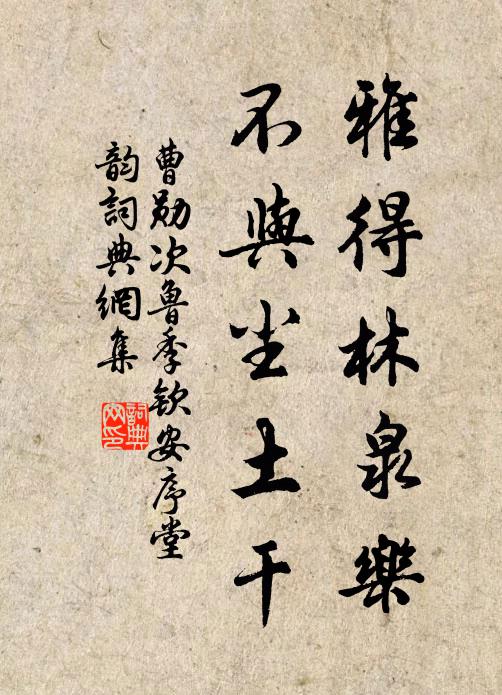 雅得林泉樂
不與尘土干
曹勛次魯季欽安序堂
韵詞典網集
詞典网印